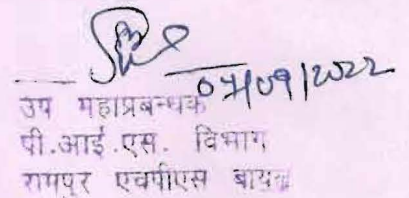 07/09/2022
उप महाप्रबन्धक
पी.आई.एस. विभाग
रामपुर एचपीएस बायल